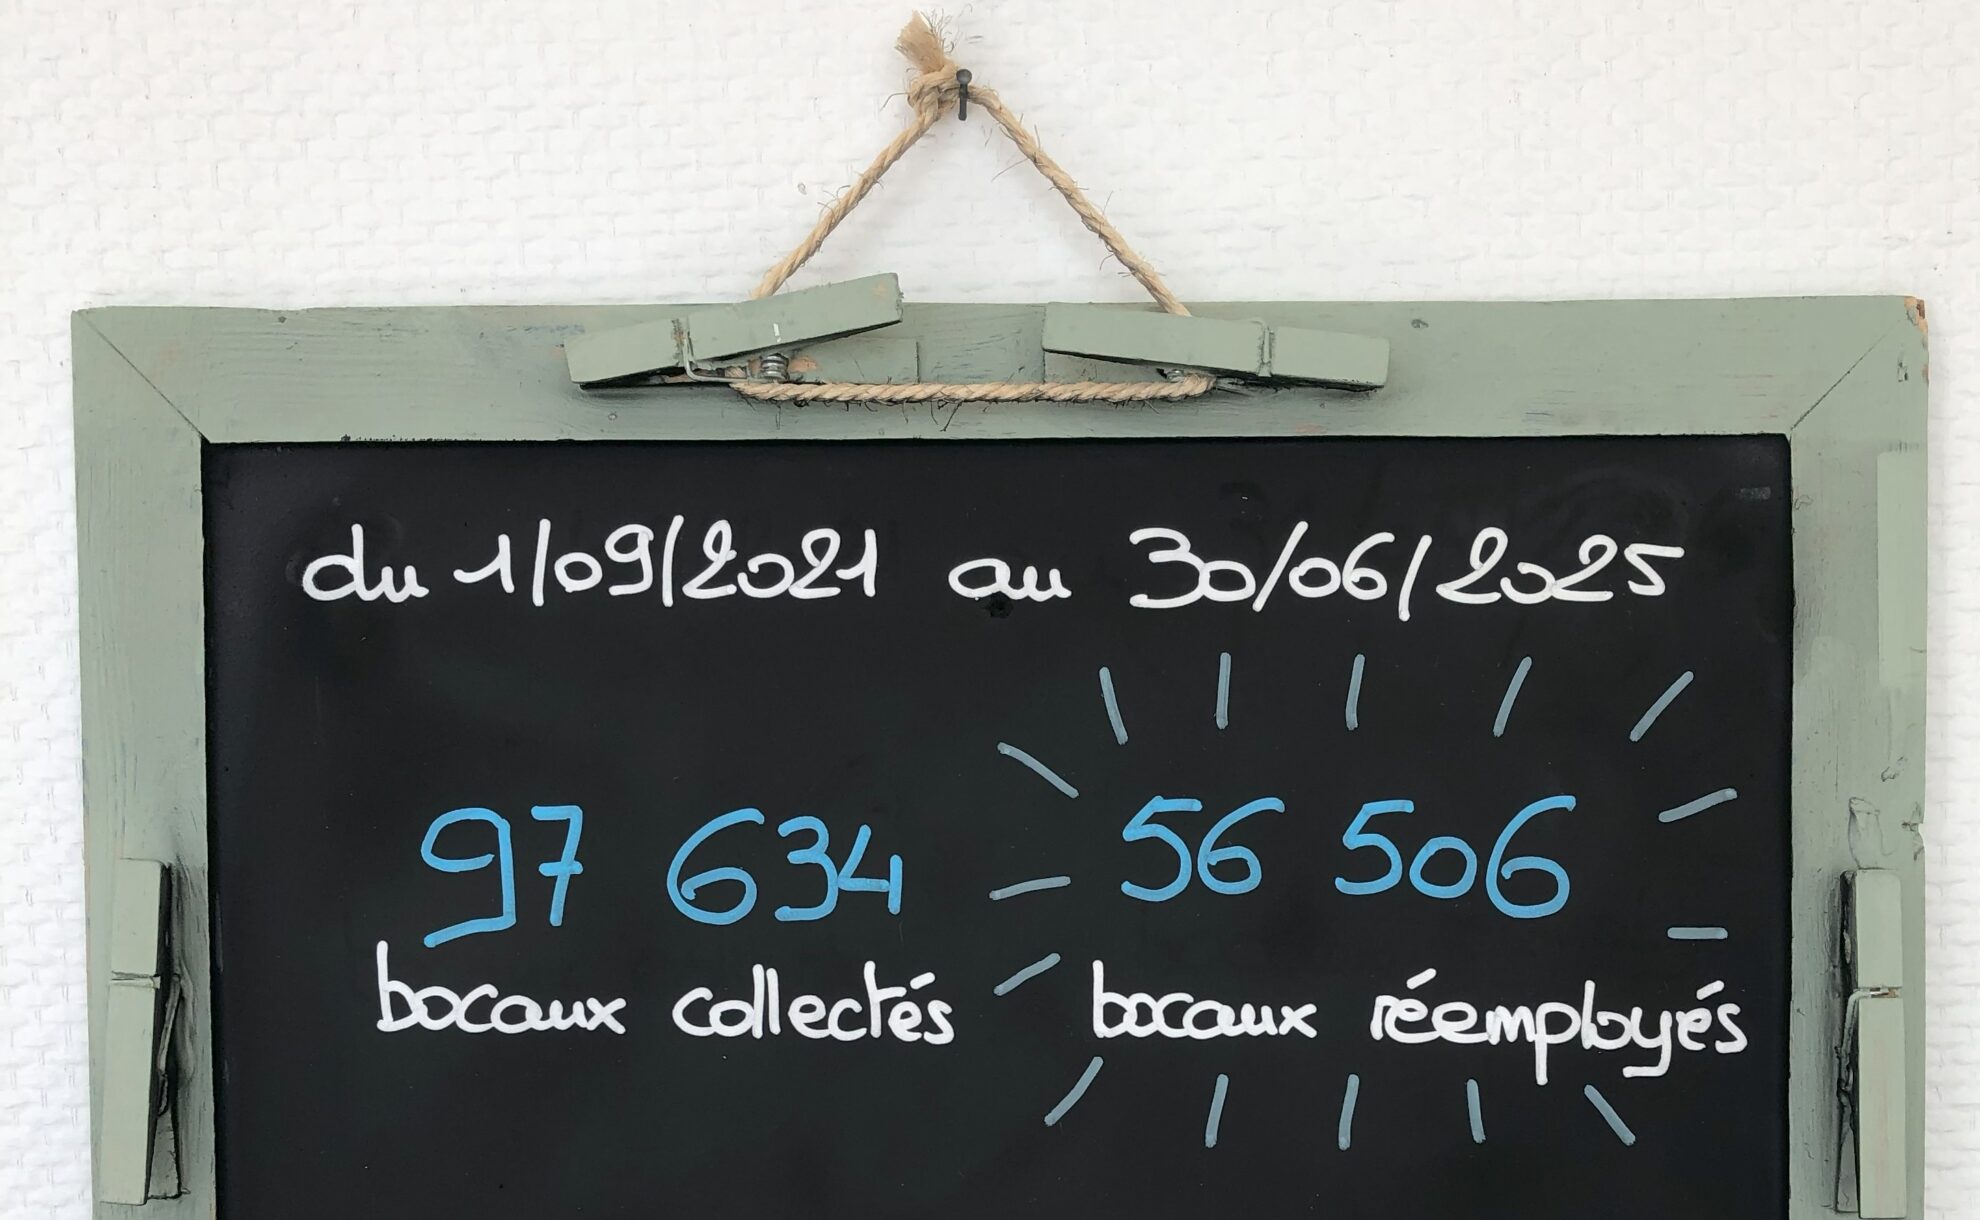 du 1/09/2021 au 30/06/2025
97 634 56 506
bocaux collectés bocaux réemployés